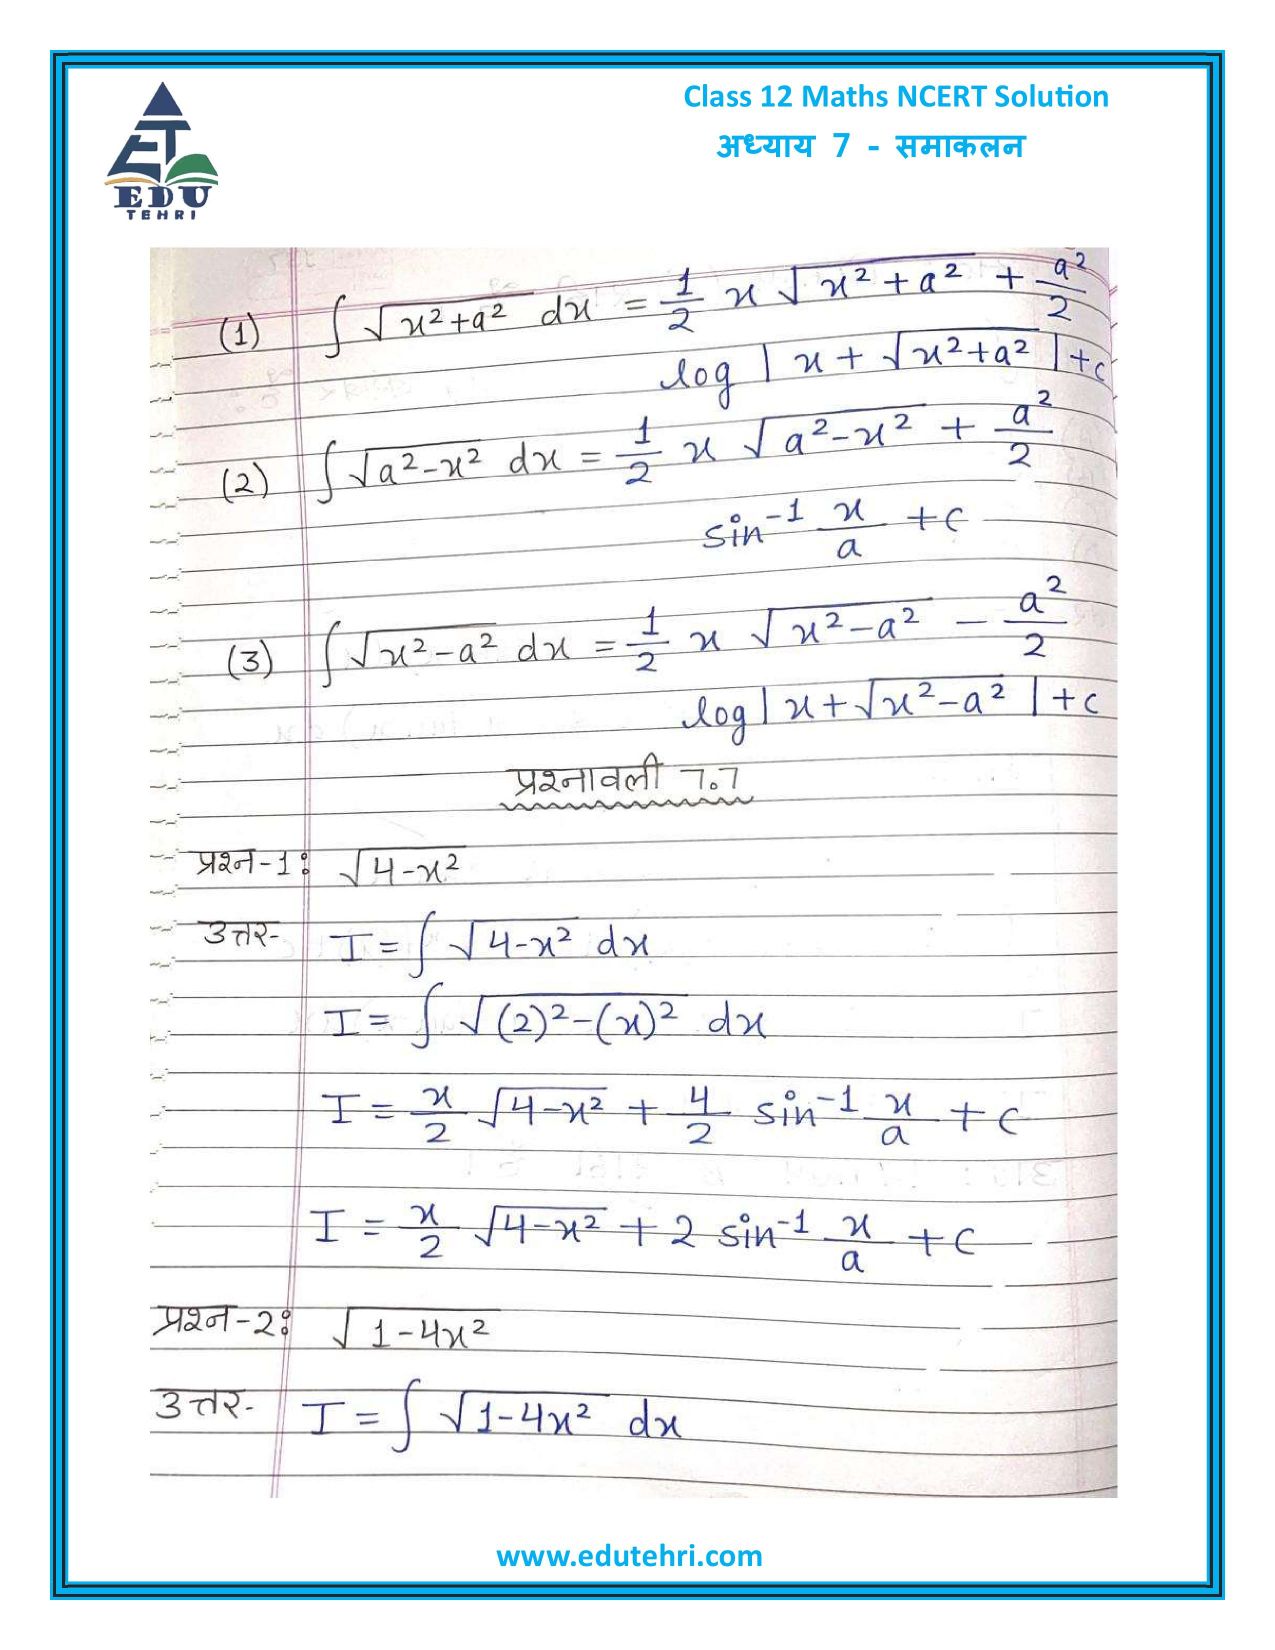 EDU
TEHRI
Class 12 Maths NCERT Solution
अध्याय 7 - समाकलन
(1) ∫ √(x²+a²) dx = 1/2 x √(x²+a²) + a²/2
log | x + √(x²+a²) | + c
(2) ∫ √(a²-x²) dx = 1/2 x √(a²-x²) + a²/2
sin⁻¹ x/a + c
(3) ∫ √(x²-a²) dx = 1/2 x √(x²-a²) - a²/2
log | x + √(x²-a²) | + c
प्रश्नावली 7.7
प्रश्न-1: √(4-x²)
उत्तर- I = ∫ √(4-x²) dx
I = ∫ √((2)²-(x)²) dx
I = x/2 √(4-x²) + 4/2 sin⁻¹ x/a + c
I = x/2 √(4-x²) + 2 sin⁻¹ x/a + c
प्रश्न-2: √(1-4x²)
उत्तर- I = ∫ √(1-4x²) dx
www.edutehri.com